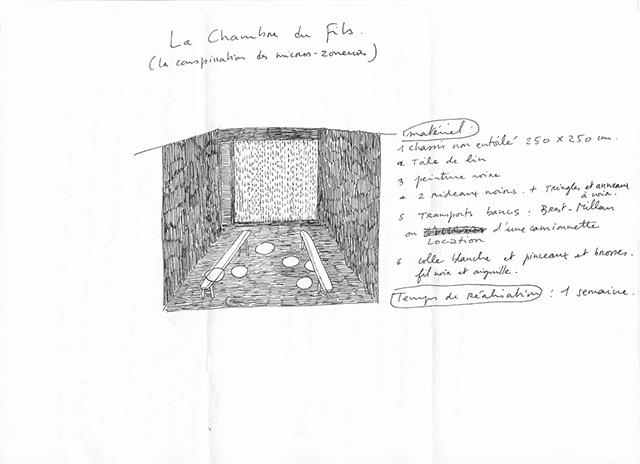 La Chambre du Fils.
(la conspiration des micros-zoneurs)
matériel :
1 chassis non entoilé 250 x 250 cm.
2 Toile de lin
3 peinture noire
4 2 rideaux noirs. + Tringles et anneaux
à noir.
5 Transports bancs : Brest-Millau
ou d'une camionnette
Location
6 colle blanche et pinceaux et brosses.
fil noir et aiguille.
Temps de réalisation : 1 semaine.